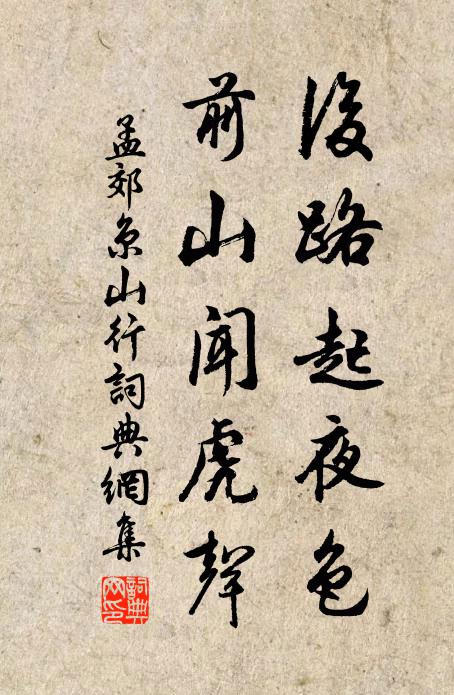 後路起夜色
前山聞虎聲
孟郊京山行詞典網集
詞典網印